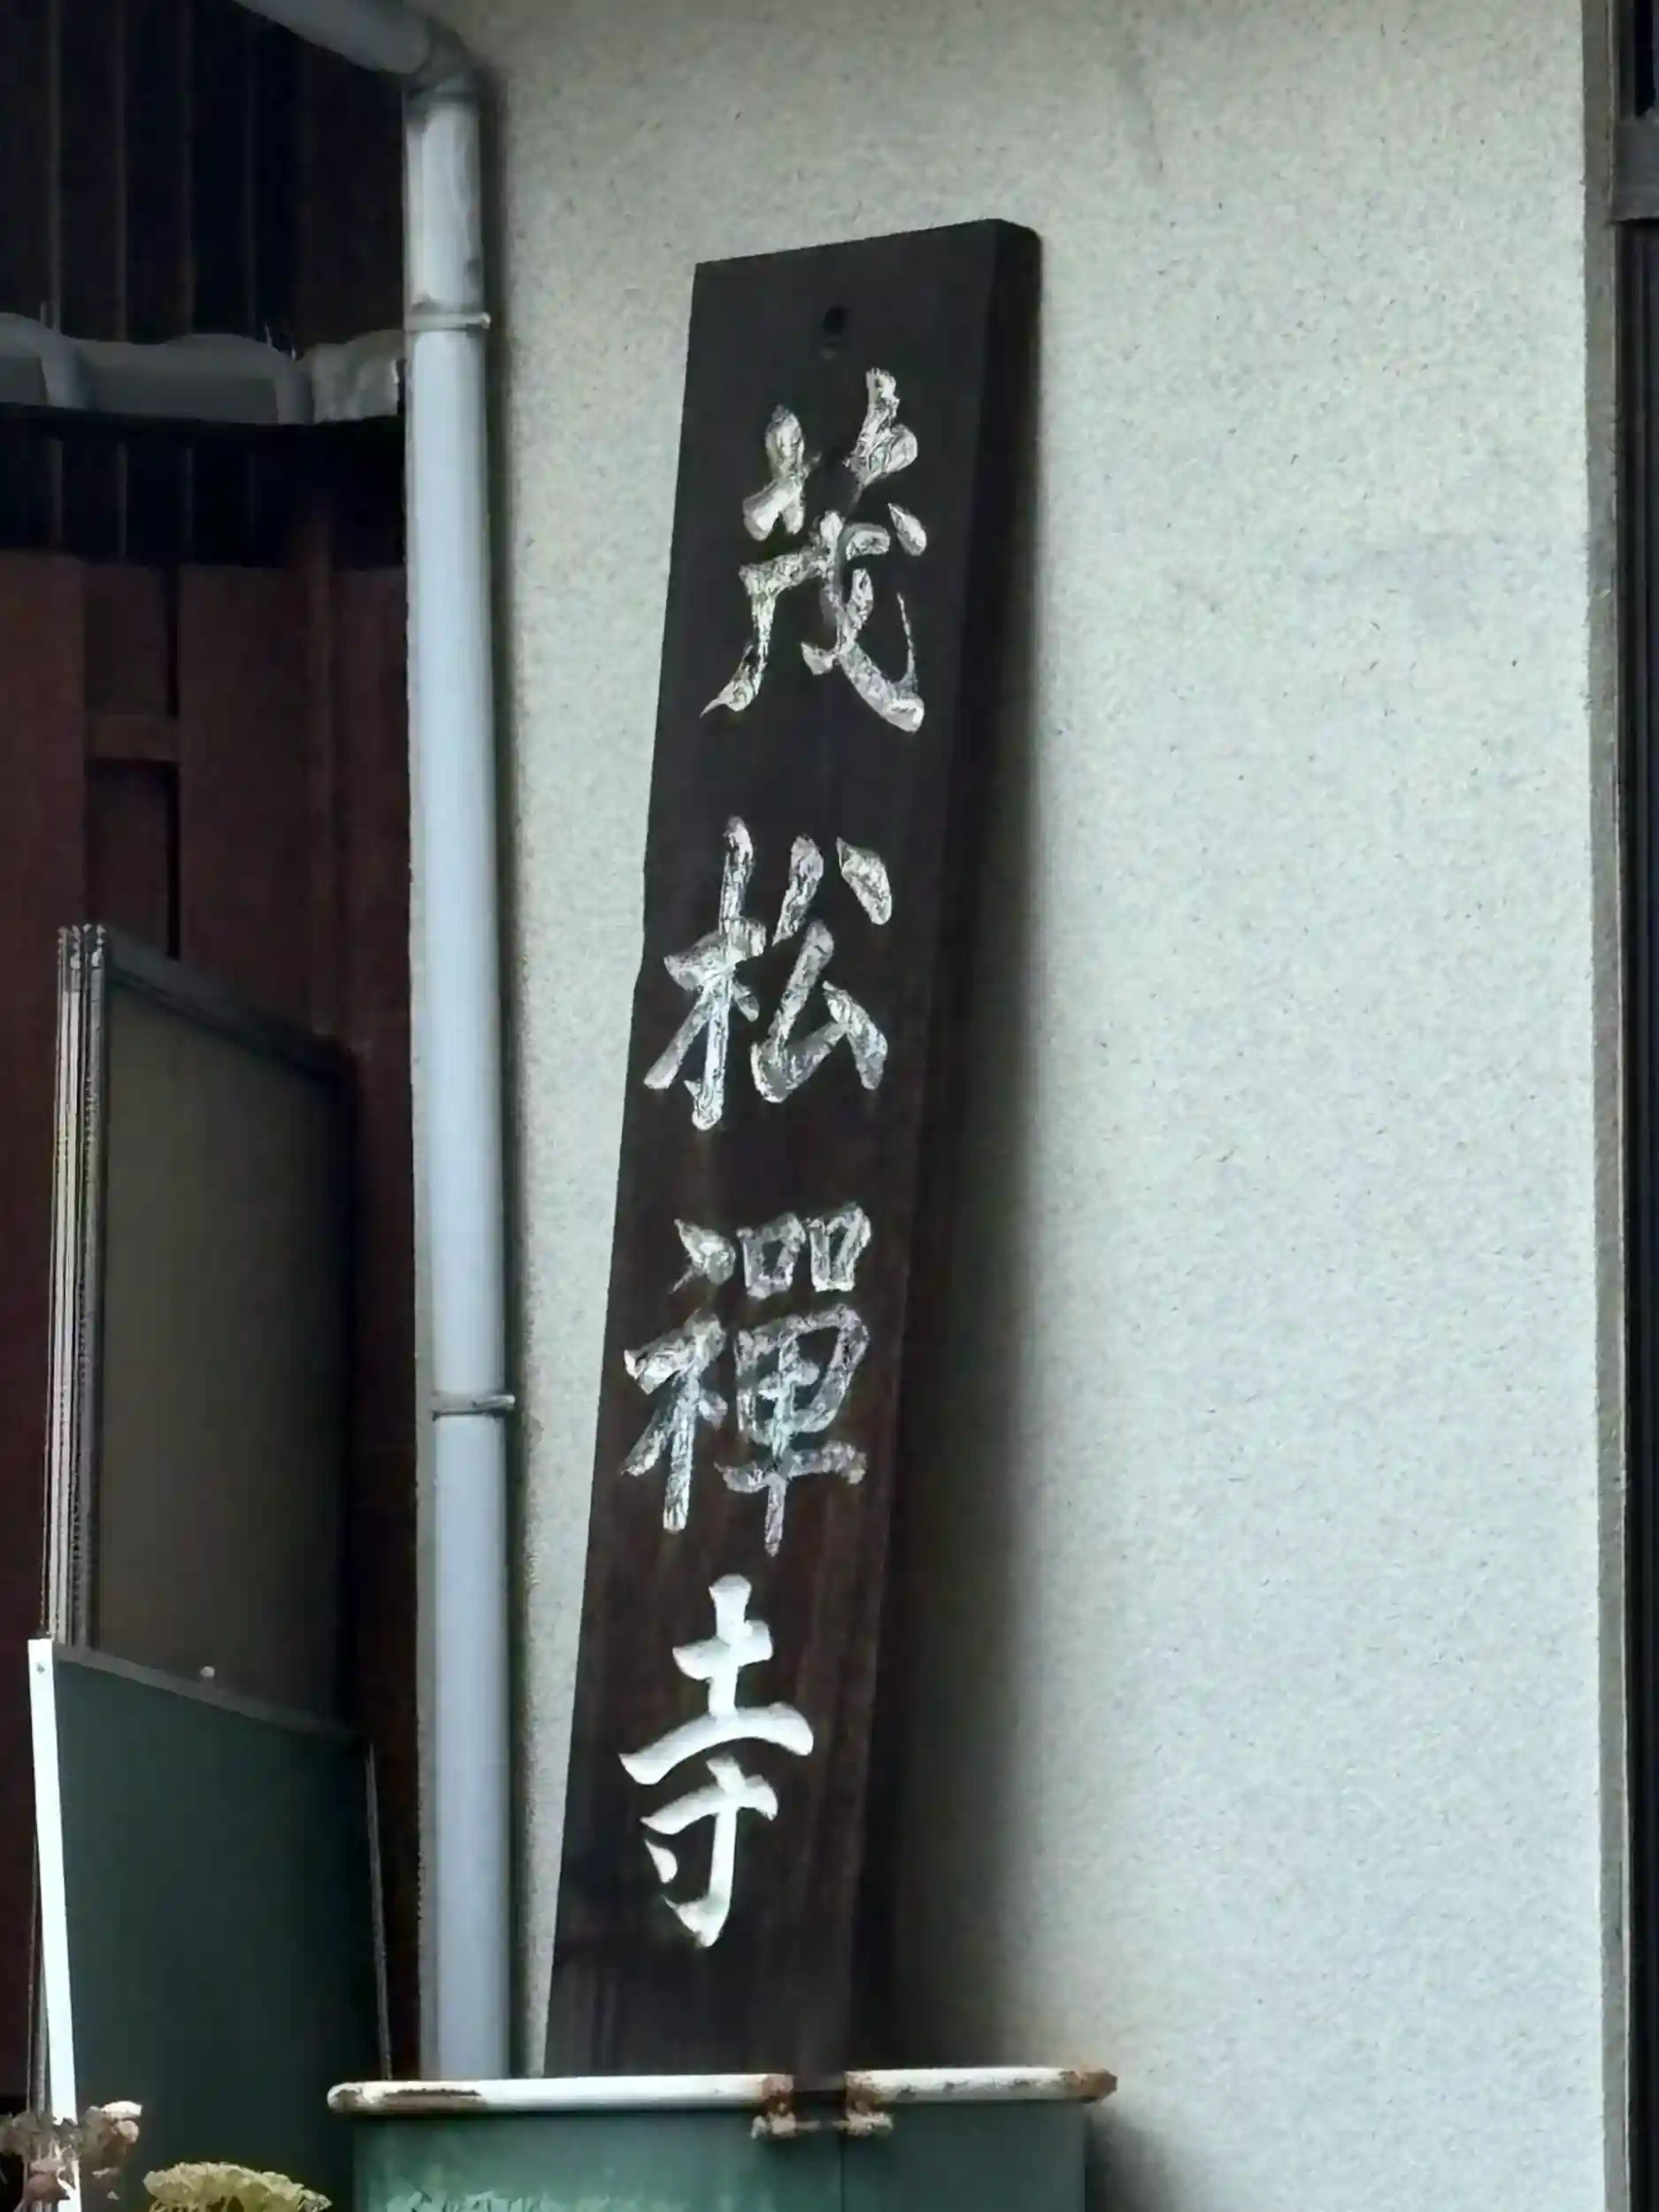 茂松禪寺